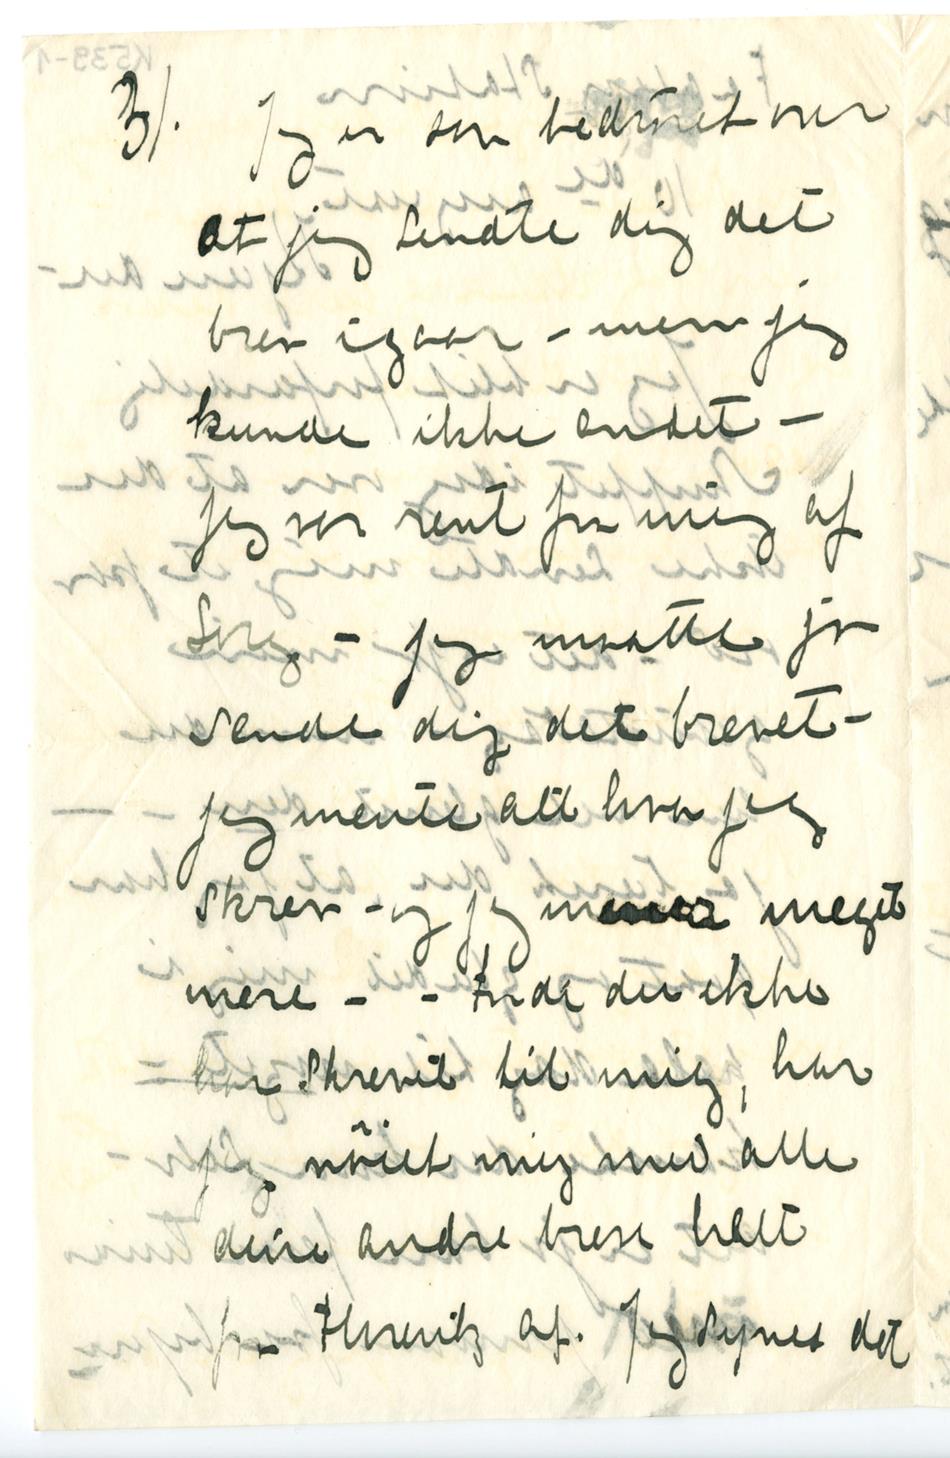 3/. Jeg er saa bedrøvet over
at jeg sendte dig det
brev igaar – men jeg
kunde ikke andet –
jeg var rent fra mig af
Sorg – jeg maatte jo
sende dig det brevet –
jeg mente alt hva jeg
skrev – og jeg mener meget
mere – – Inde du ikke
har skrevet til mig, har
jeg nöiet mig med alle
dine andre breve helt
fra Hurwitz af. Jeg synes det